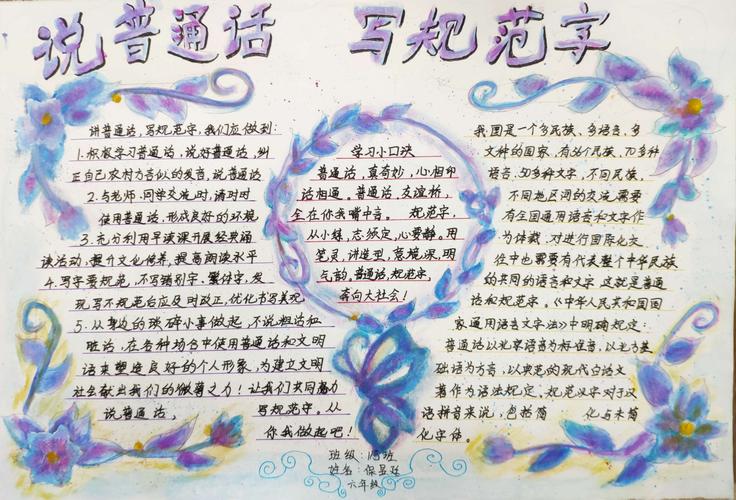 说普通话 写规范字
讲普通话,写规范字,我们应做到:
1.积极学习普通话,说好普通话,纠
正自己农村方言似的发音,说普通话
2.与老师、同学交流时,请对时
使用普通话,形成良好的环境
3.充分利用早读课开展经典诵
读活动,提升文化修养,提高阅读水平
4.写字要规范,不写错别字、繁体字,发
现写不规范后应及时改正,优化书写美观
5.从身边的琐碎小事做起,不说粗话和
脏话,在各种场合中使用普通话和文明
语来塑造良好的个人形象,为建立文明
社会献出我们的微薄之力!让我们共同努力
说普通话, 写规范字。从
你我做起吧!
学习小口决
普通话,真奇妙,心相印
话相通。普通话,友谊桥,
全在你我嘴中言。 规范字,
从小练,志须定,心要静。用
笔灵,讲造型,意境深,明
气韵,普通话,规范字,
奔向大社会!
我国是一个多民族、多语言、多
文种的国家,有56个民族、70多种
语言、50多种文字,不同民族、
不同地区间的交流需要
有全国通用语言和文字作
为体载,对进行国际化交
往中也需要有代表整个中华民族
的共同的语言和文字,这就是普通
话和规范字。《中华人民共和国国
家通用语言文字法》中明确规定:
普通话以北京语音为标准音,以北方基
础语为方言,以典范的现代白话文
著作为语法规定。规范汉字对于汉
语拼音来说,包括简 化与未简
化字体。
班级:
姓名:保
六年级